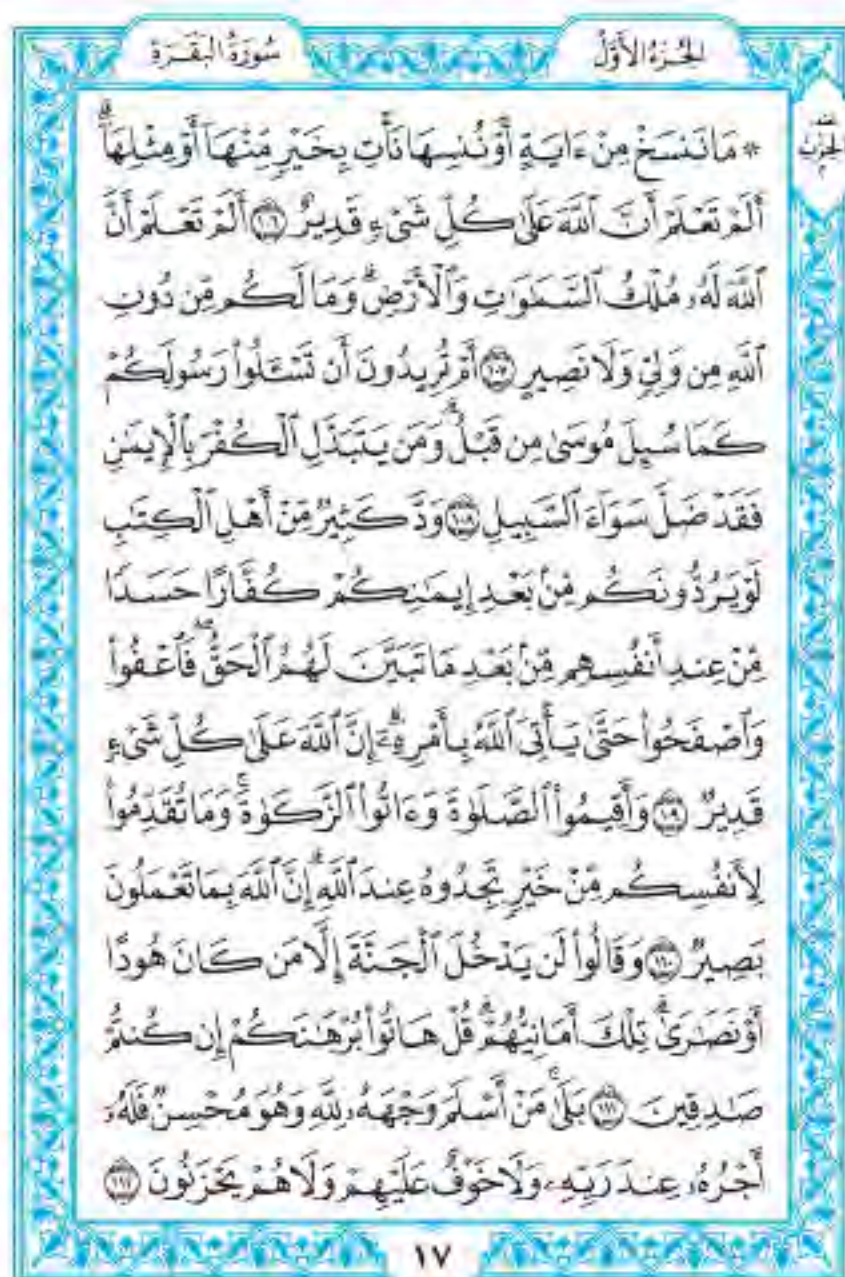 الجُزْءُ الأَوَّلُ
سُورَةُ البَقَرَةِ
نصف
الحِزْبِ
٢
۞ مَا نَنسَخْ مِنْ ءَايَةٍ أَوْ نُنسِهَا نَأْتِ بِخَيْرٍ مِّنْهَآ أَوْ مِثْلِهَآۗ
أَلَمْ تَعْلَمْ أَنَّ ٱللَّهَ عَلَىٰ كُلِّ شَىْءٍ قَدِيرٌ ١٠٦ أَلَمْ تَعْلَمْ أَنَّ
ٱللَّهَ لَهُۥ مُلْكُ ٱلسَّمَٰوَٰتِ وَٱلْأَرْضِۗ وَمَا لَكُم مِّن دُونِ
ٱللَّهِ مِن وَلِىٍّ وَلَا نَصِيرٍ ١٠٧ أَمْ تُرِيدُونَ أَن تَسْـَٔلُوا۟ رَسُولَكُمْ
كَمَا سُئِلَ مُوسَىٰ مِن قَبْلُۗ وَمَن يَتَبَدَّلِ ٱلْكُفْرَ بِٱلْإِيمَٰنِ
فَقَدْ ضَلَّ سَوَآءَ ٱلسَّبِيلِ ١٠٨ وَدَّ كَثِيرٌ مِّنْ أَهْلِ ٱلْكِتَٰبِ
لَوْ يَرُدُّونَكُم مِّنۢ بَعْدِ إِيمَٰنِكُمْ كُفَّارًا حَسَدًا
مِّنْ عِندِ أَنفُسِهِم مِّنۢ بَعْدِ مَا تَبَيَّنَ لَهُمُ ٱلْحَقُّۖ فَٱعْفُوا۟
وَٱصْفَحُوا۟ حَتَّىٰ يَأْتِىَ ٱللَّهُ بِأَمْرِهِۦٓۗ إِنَّ ٱللَّهَ عَلَىٰ كُلِّ شَىْءٍ
قَدِيرٌ ١٠٩ وَأَقِيمُوا۟ ٱلصَّلَوٰةَ وَءَاتُوا۟ ٱلزَّكَوٰةَۚ وَمَا تُقَدِّمُوا۟
لِأَنفُسِكُم مِّنْ خَيْرٍ تَجِدُوهُ عِندَ ٱللَّهِۗ إِنَّ ٱللَّهَ بِمَا تَعْمَلُونَ
بَصِيرٌ ١١٠ وَقَالُوا۟ لَن يَدْخُلَ ٱلْجَنَّةَ إِلَّا مَن كَانَ هُودًا
أَوْ نَصَٰرَىٰۗ تِلْكَ أَمَانِيُّهُمْۗ قُلْ هَاتُوا۟ بُرْهَٰنَكُمْ إِن كُنتُمْ
صَٰدِقِينَ ١١١ بَلَىٰۚ مَنْ أَسْلَمَ وَجْهَهُۥ لِلَّهِ وَهُوَ مُحْسِنٌ فَلَهُۥٓ
أَجْرُهُۥ عِندَ رَبِّهِۦ وَلَا خَوْفٌ عَلَيْهِمْ وَلَا هُمْ يَحْزَنُونَ ١١٢
١٧